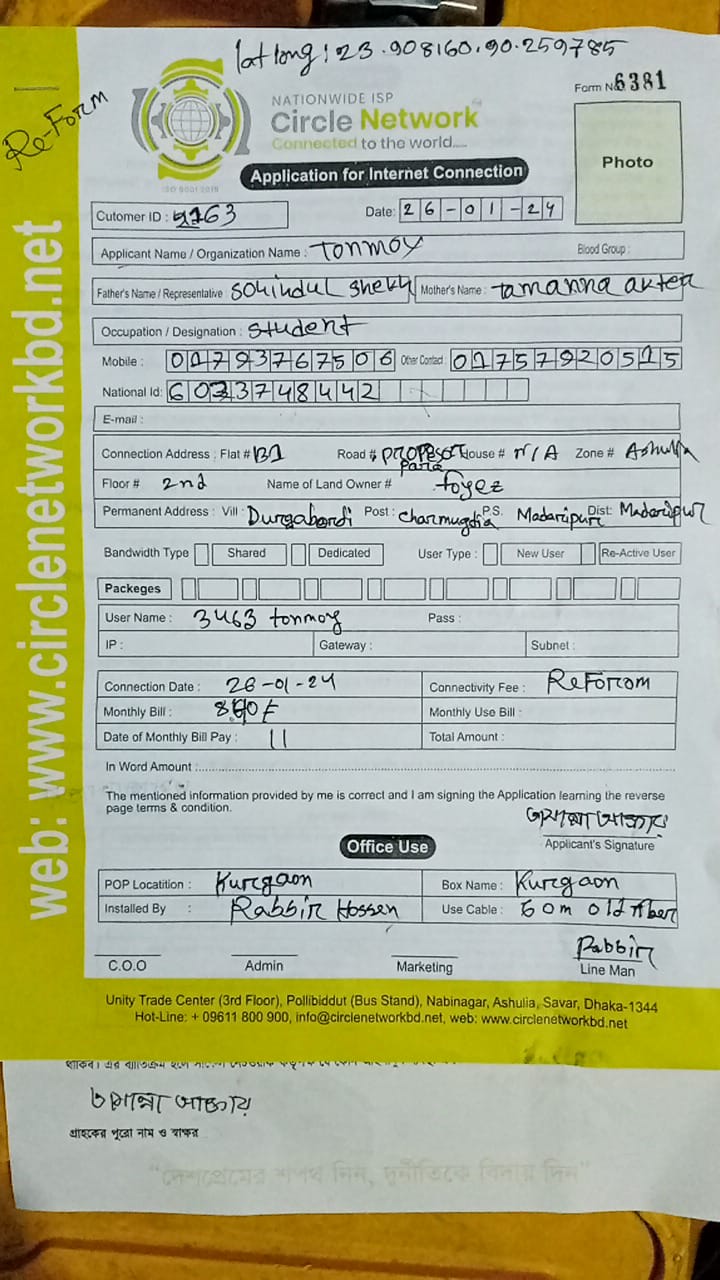 lat long: 23.908160, 90.259785
Re-Form
Form No 6381
NATIONWIDE ISP
Circle Network
Connected to the world.....
ISO 9001:2015
Application for Internet Connection
Photo
Cutomer ID : 3463 Date: 26-01-24
Applicant Name / Organization Name : Tonmoy Blood Group :
Father's Name / Representative Sohindul Shekh Mother's Name : tamanna akter
Occupation / Designation : Student
Mobile : 01793767506 Other Contact : 01757920515
National Id: 6033748442
E-mail :
Connection Address : Flat # B1 Road # Para House # N/A Zone # Ashulia
Floor # 2nd Name of Land Owner # foyez
Permanent Address : Vill : Durgabardi Post : Charmugdia P.S. Madaripur Dist: Madaripur
Bandwidth Type Shared Dedicated User Type : New User Re-Active User
Packeges
User Name : 3463 tonmoy Pass :
IP : Gateway : Subnet :
Connection Date : 26-01-24 Connectivity Fee : ReForom
Monthly Bill : Monthly Use Bill :
Date of Monthly Bill Pay : 11 Total Amount :
In Word Amount :
The mentioned information provided by me is correct and I am signing the Application learning the reverse
page terms & condition.
Applicant's Signature
Office Use
POP Locatition : Kurgaon Box Name : Kurgaon
Installed By : Rabbir Hossen Use Cable : 60m old fiber
Rabbir
C.O.O Admin Marketing Line Man
Unity Trade Center (3rd Floor), Pollibiddut (Bus Stand), Nabinagar, Ashulia, Savar, Dhaka-1344
Hot-Line: + 09611 800 900, info@circlenetworkbd.net, web: www.circlenetworkbd.net
web: www.circlenetworkbd.net
তামান্না আক্তার
গ্রাহকের পুরো নাম ও স্বাক্ষর
"দেশপ্রেমের শপথ নিন, দুর্নীতিকে বিদায় দিন"